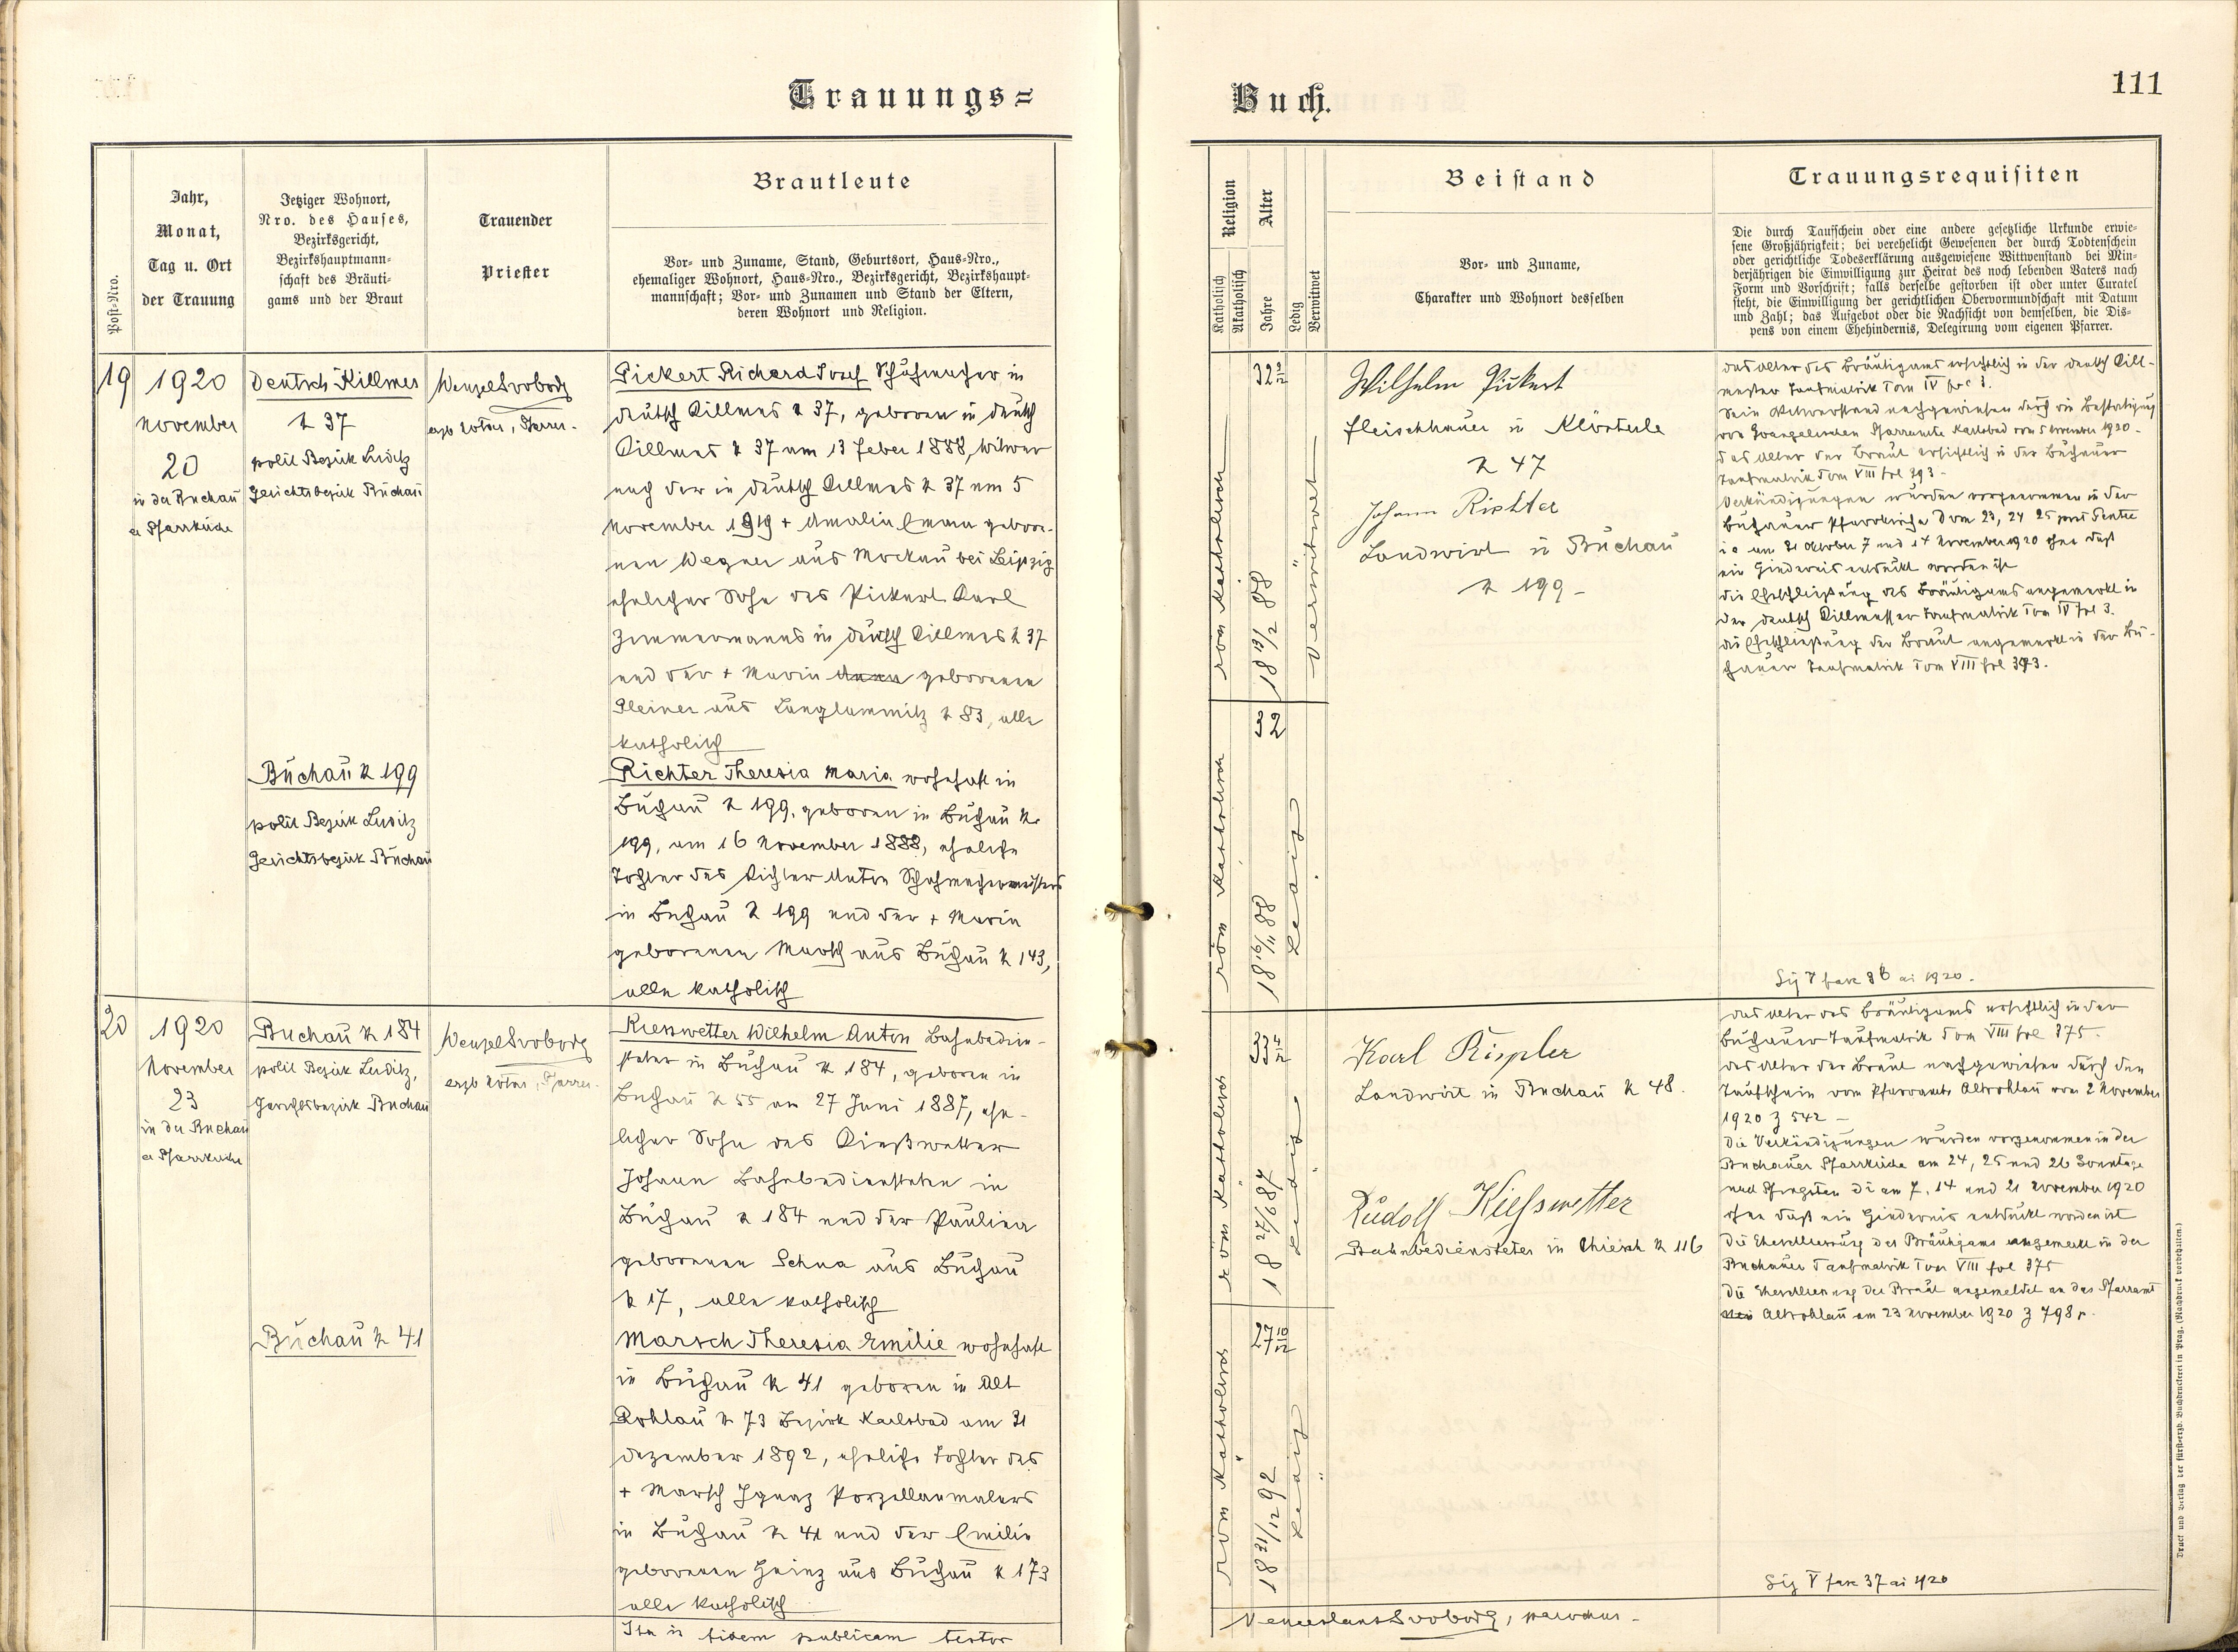 Trauungs=
Buch.
111
Post-Nro.
Jahr,
Monat,
Tag u. Ort
der Trauung
Jetziger Wohnort,
Nro. des Hauses,
Bezirksgericht,
Bezirkshauptmann-
schaft des Bräuti-
gams und der Braut
Trauender
Priester
Brautleute
Vor- und Zuname, Stand, Geburtsort, Haus-Nro.,
ehemaliger Wohnort, Haus-Nro., Bezirksgericht, Bezirkshaupt-
mannschaft; Vor- und Zunamen und Stand der Eltern,
deren Wohnort und Religion.
Religion
Katholisch
Akatholisch
Alter
Jahre
Ledig
Verwitwet
Beistand
Vor- und Zuname,
Charakter und Wohnort desselben
Trauungsrequisiten
Die durch Taufschein oder eine andere gesetzliche Urkunde erwie-
sene Großjährigkeit; bei verehelicht Gewesenen der durch Todtenschein
oder gerichtliche Todeserklärung ausgewiesene Wittwenstand bei Min-
derjährigen die Einwilligung zur Heirat des noch lebenden Vaters nach
Form und Vorschrift; falls derselbe gestorben ist oder unter Curatel
steht, die Einwilligung der gerichtlichen Obervormundschaft mit Datum
und Zahl; das Aufgebot oder die Nachsicht von demselben, die Dis-
pens von einem Ehehindernis, Delegirung vom eigenen Pfarrer.
19
1920
November
20
in der Buchau
er Pfarrkirche
Deutsch Killmes
№ 37
polit Bezirk Luditz
Gerichtsbezirk Buchau
Wenzel Svoboda
erzb Notar, Pfarrer
Pickert Richard Josef Schuhmacher in
deutsch Killmes № 37, geboren in deutsch
Killmes № 37 am 13 Feber 1888, Witwer
nach der in deutsch Killmes № 37 am 5
November 1919 + Amalia Emma gebore-
nen Wegner aus Mockau bei Leipzig
ehelicher Sohn des Pickert Karl
Zimmermanns in deutsch Killmes № 37
und der + Maria Anna geborenen
Kleiner aus Langlammitz № 83, alle
katholisch
Buchau № 199
polit Bezirk Luditz
Gerichtsbezirk Buchau
Richter Theresia Maria wohnhaft in
Buchau № 199, geboren in Buchau №
199, am 16 November 1888, eheliche
Tochter des Richter Anton Schuhmachermeisters
in Buchau № 199 und der + Maria
geborenen Marsch aus Buchau № 143,
alle katholisch
röm katholisch
32 9/12
18 13/2 88
Verwitwet
röm katholisch
32
18 16/11 88
Ledig
Wilhelm Pickert
Fleischhauer in Klösterle
№ 47
Johann Richter
Landwirt in Buchau
№ 199 -
das Alter des Bräutigams ersichtlich in der deutsch Kill-
messer Taufmatrik Tom IV fol 3.
Sein Witwerstand nachgewiesen durch die Bestätigung
des Evangelischen Pfarramts Karlsbad vom 5 November 1920 -
das Alter der Braut ersichtlich in der Buchauer
Taufmatrik Tom VIII fol 393 -
Verkündigungen wurden vorgenommen in der
Buchauer Pfarrkirche Dom 23, 24 25 post Pentec
i e am 31 Oktober 7 und 14 November 1920 ohne daß
ein Hindernis entdeckt worden ist
die Eheschließung des Bräutigams angemerkt in
der deutsch Killmesser Taufmatrik Tom IV fol 3.
die Eheschließung der Braut angemerkt in der Bu-
chauer Taufmatrik Tom VIII fol 393.
Sig V fasc 36 ai 1920.
20
1920
November
23
in der Buchau
er Pfarrkirche
Buchau № 184
polit Bezirk Luditz,
Gerichtsbezirk Buchau
Wenzel Svoboda
erzb Notar, Pfarrer
Kiesswetter Wilhelm Anton Bahnbedien-
steter in Buchau № 184, geboren in
Buchau № 55 am 27 Juni 1887, ehe-
licher Sohn des Kießwetter
Johann Bahnbediensteten in
Buchau № 184 und der Paulina
geborenen Schua aus Buchau
№ 17, alle katholisch
Buchau № 41
Marsch Theresia Emilie wohnhaft
in Buchau № 41 geboren in Alt
Rohlau № 73 Bezirk Karlsbad am 31
Dezember 1892, eheliche Tochter des
+ Marsch Ignaz Porzellanmalers
in Buchau № 41 und der Emilie
geborenen Heinz aus Buchau № 173
alle katholisch
röm katholisch
18 27/6 87
Ledig
röm katholisch
27 10/12
18 31/12 92
Ledig
Karl Rispler
Landwirt in Buchau № 48.
Rudolf Kiesswetter
Bahnbediensteter in Chiesch № 116
das Alter des Bräutigams ersichtlich in der
Buchauer Taufmatrik Tom VIII fol 375 -
das Alter der Braut nachgewiesen durch den
Taufschein vom Pfarramte Altrohlau vom 2 November
1920 Z 542 -
Die Verkündigungen wurden vorgenommen in der
Buchauer Pfarrkirche am 24, 25 und 26 Sonntage
nach Pfingsten di am 7, 14 und 21 November 1920
ohne daß ein Hindernis entdeckt worden ist
Die Eheschliessung des Bräutigams angemerkt in der
Buchauer Taufmatrik Tom VIII fol 375
Die Eheschliessung der Braut angemeldet an das Pfarramt
Altrohlau am 23 November 1920 Z 798
Sig V fasc 37 ai 1920
Ita in fidem publicam testor
Venceslaus Svoboda, parochus -
Druck und Verlag der fürsterzb. Buchdruckerei in Prag. (Nachdruck vorbehalten.)